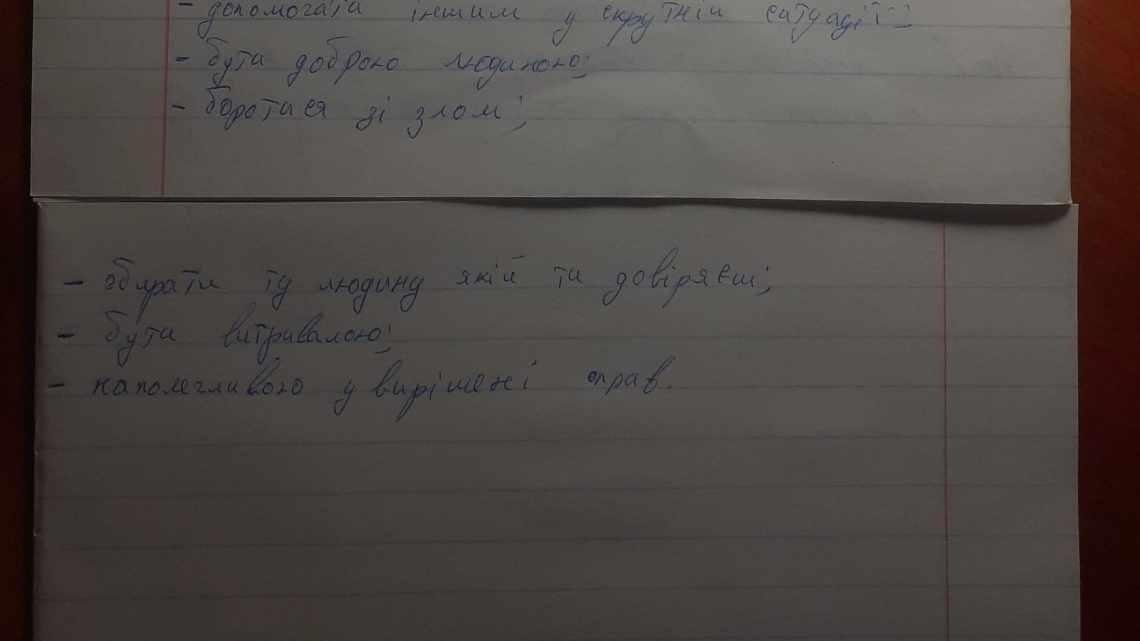 - допомогати іншим у скрутній ситуації;
- бути доброю людиною;
- боротися зі злом;
- обирати ту людину якій ти довіряєш;
- бути витривалою;
- наполегливою у вирішені справ.